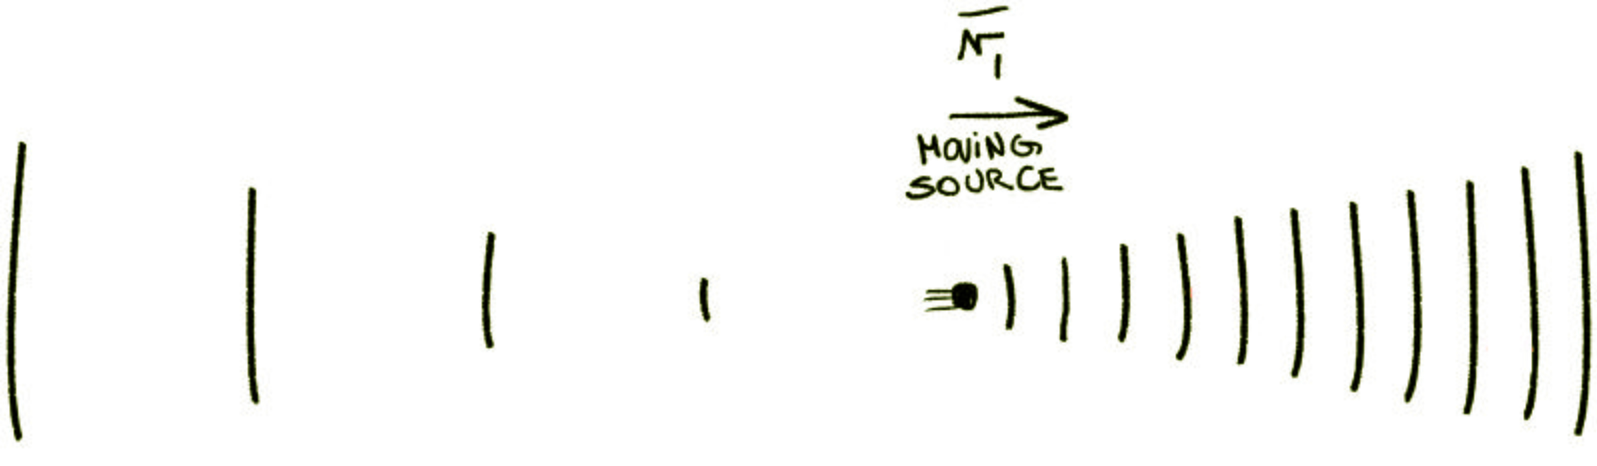 v̅₁
MOViNG
SOURCE